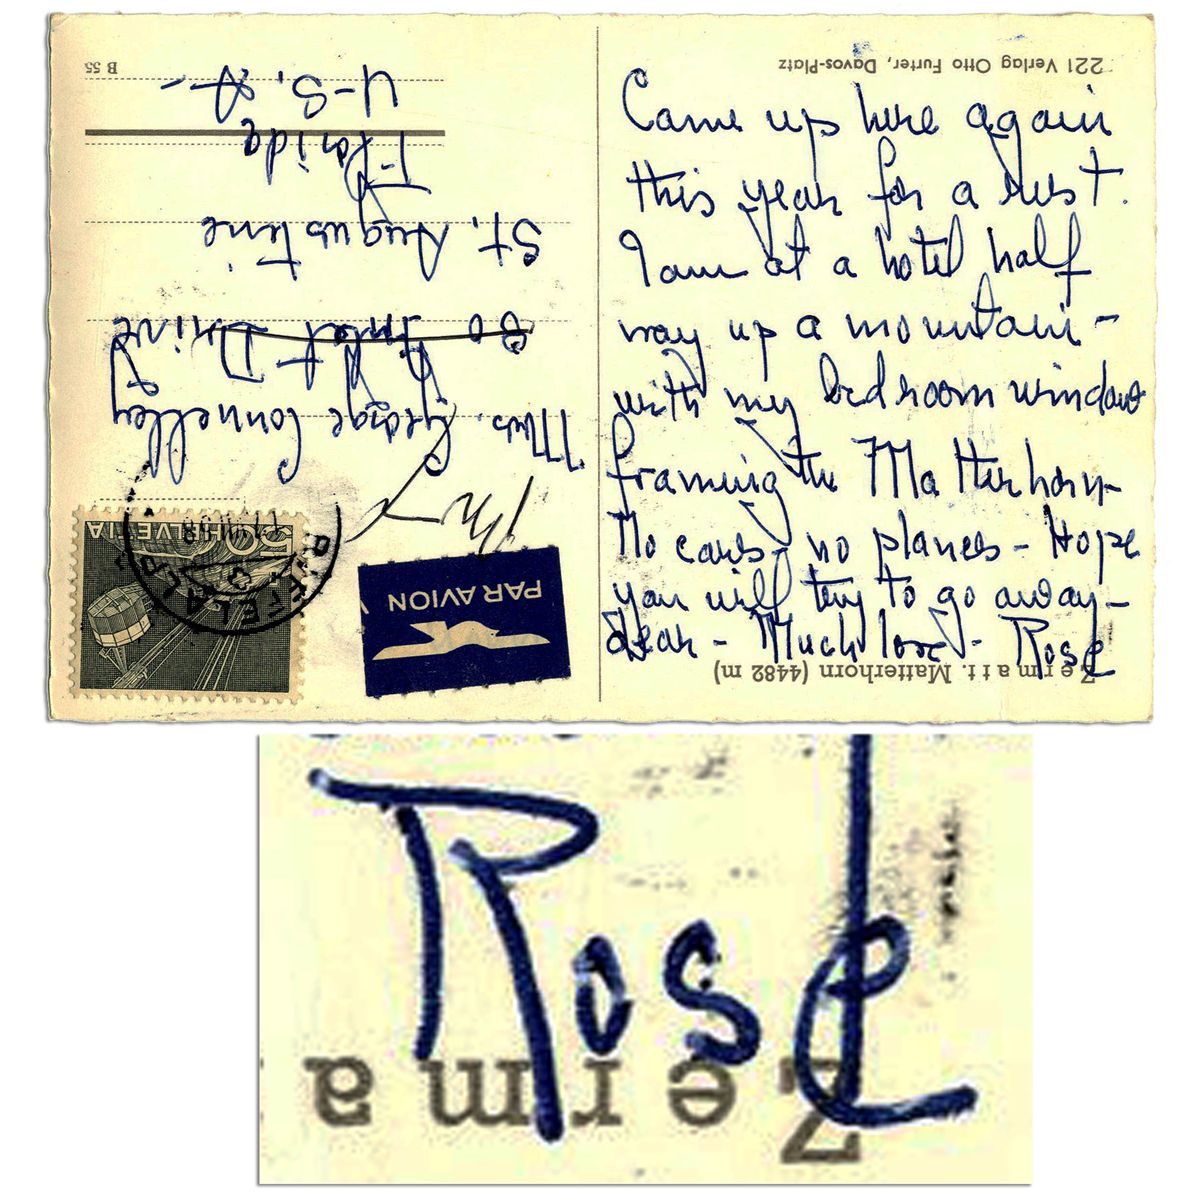 Came up here again
this year for a rest.
I am at a hotel half
way up a mountain -
with my bedroom window
framing the Matterhorn -
No cars - no planes - Hope
you will try to go away -
dear - Much love - Rose
221 Verlag Otto Furter, Davos-Platz
Zermatt. Matterhorn (4482 m)
Mrs. George Connelley
80 Inlet Drive
St. Augustine
Florida
U-S. A-
B 55
50 HELVETIA
PAR AVION
Rose
Zerma